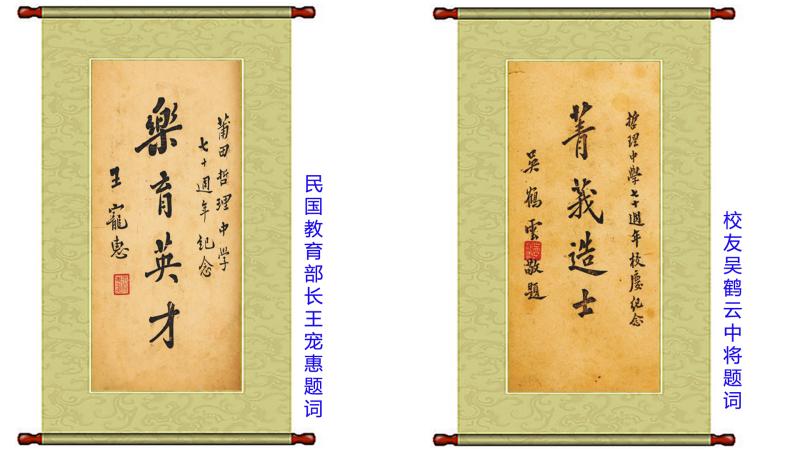 莆田哲理中學
七十週年紀念
樂育英才
王寵惠
民国教育部长王宠惠题词
哲理中學七十週年校慶紀念
菁莪造士
吳鶴雲敬題
校友吴鹤云中将题词